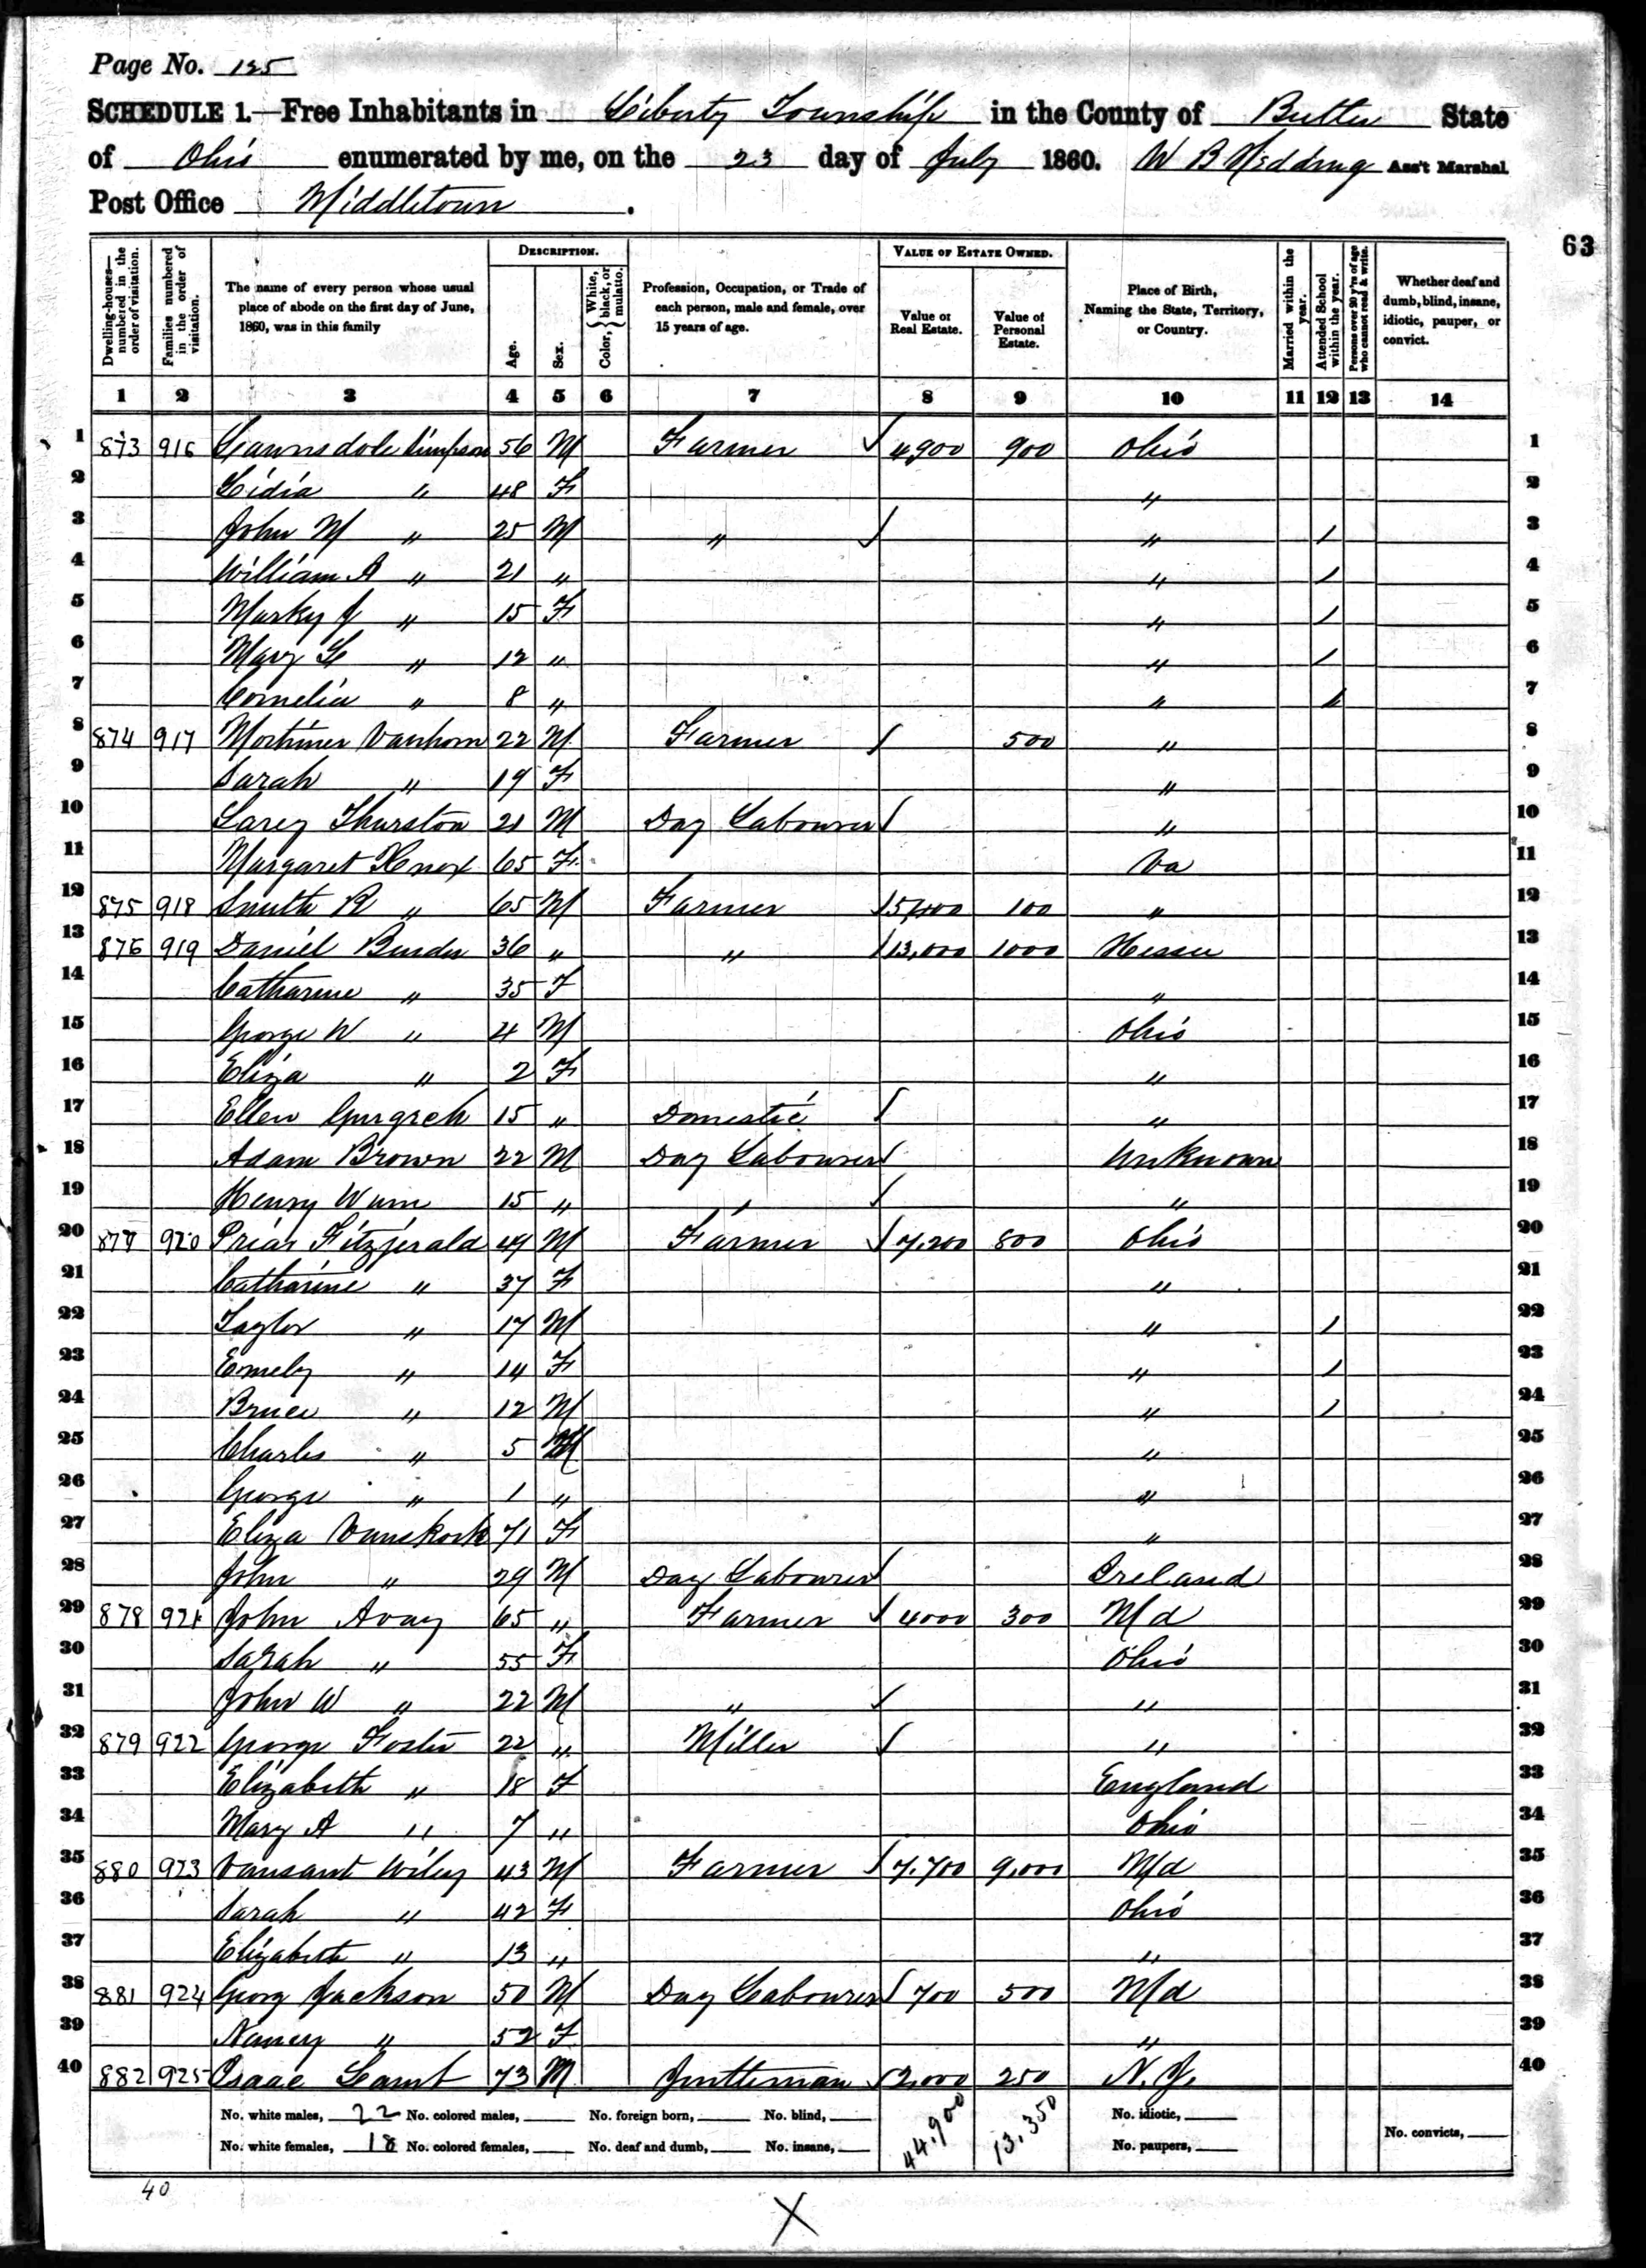 Page No. 125
SCHEDULE 1.—Free Inhabitants in Liberty Township in the County of Butler State
of Ohio enumerated by me, on the 23 day of July 1860. W B Ass't Marshal.
Post Office Middletown.
63
Dwelling-houses—numbered in the order of visitation. Families numbered in the order of visitation. The name of every person whose usual place of abode on the first day of June, 1860, was in this family DESCRIPTION. Age. Sex. Color, { White, black, or mulatto. Profession, Occupation, or Trade of each person, male and female, over 15 years of age. VALUE OF ESTATE OWNED. Value of Real Estate. Value of Personal Estate. Place of Birth, Naming the State, Territory, or Country. Married within the year. Attended School within the year. Persons over 20 y'rs of age who cannot read & write. Whether deaf and dumb, blind, insane, idiotic, pauper, or convict.
1 2 3 4 5 6 7 8 9 10 11 12 13 14
1 873 916 Simpson 56 M Farmer 4,900 900 Ohio 1
2 Lidia " 48 F " 2
3 John M " 25 M " " / 3
4 William A " 21 " " / 4
5 J " 15 F " / 5
6 Mary " 12 " " / 6
7 Cornelia " 8 " " / 7
8 874 917 Mortimer Vanhorn 22 M Farmer 500 " 8
9 Sarah " 19 F " 9
10 Larey Thurston 21 M Day Labourer " 10
11 Margaret Knox 65 F Va 11
12 875 918 Smith R " 65 M Farmer 5,400 100 " 12
13 876 919 Daniel Binder 36 " " 13,000 1000 Hessen 13
14 Catharine " 35 F " 14
15 George W " 4 M Ohio 15
16 Eliza " 2 F " 16
17 Ellen 15 " Domestic " 17
18 Adam Brown 22 M Day Labourer Unknown 18
19 Henry 15 " " " 19
20 877 920 Prias Fitzjerald 49 M Farmer 7,200 800 Ohio 20
21 Catharine " 37 F " 21
22 Taylor " 17 M " / 22
23 Emely " 14 F " / 23
24 Bruce " 12 M " / 24
25 Charles " 5 M " 25
26 George " 1 " " 26
27 Eliza 71 F " 27
28 John " 29 M Day Labourer Ireland 28
29 878 921 John Avay 65 " Farmer 4000 300 Md 29
30 Sarah " 55 F Ohio 30
31 John W " 22 M " " 31
32 879 922 George Foster 22 " Miller " 32
33 Elizabeth " 18 F England 33
34 Mary A " 7 " Ohio 34
35 880 923 Vansant Wiley 43 M Farmer 7,700 9,000 Md 35
36 Sarah " 42 F Ohio 36
37 Elizabeth " 13 " " 37
38 881 924 Georg Jackson 50 M Day Labourer 700 500 Md 38
39 Nancy " 52 F " 39
40 882 925 Isaac 73 M Gentleman 2,000 250 N.J. 40
No. white males, 22 No. colored males, No. foreign born, No. blind, 44,900 13,350 No. idiotic,
No. white females, 18 No. colored females, No. deaf and dumb, No. insane, No. paupers, No. convicts,
40
X